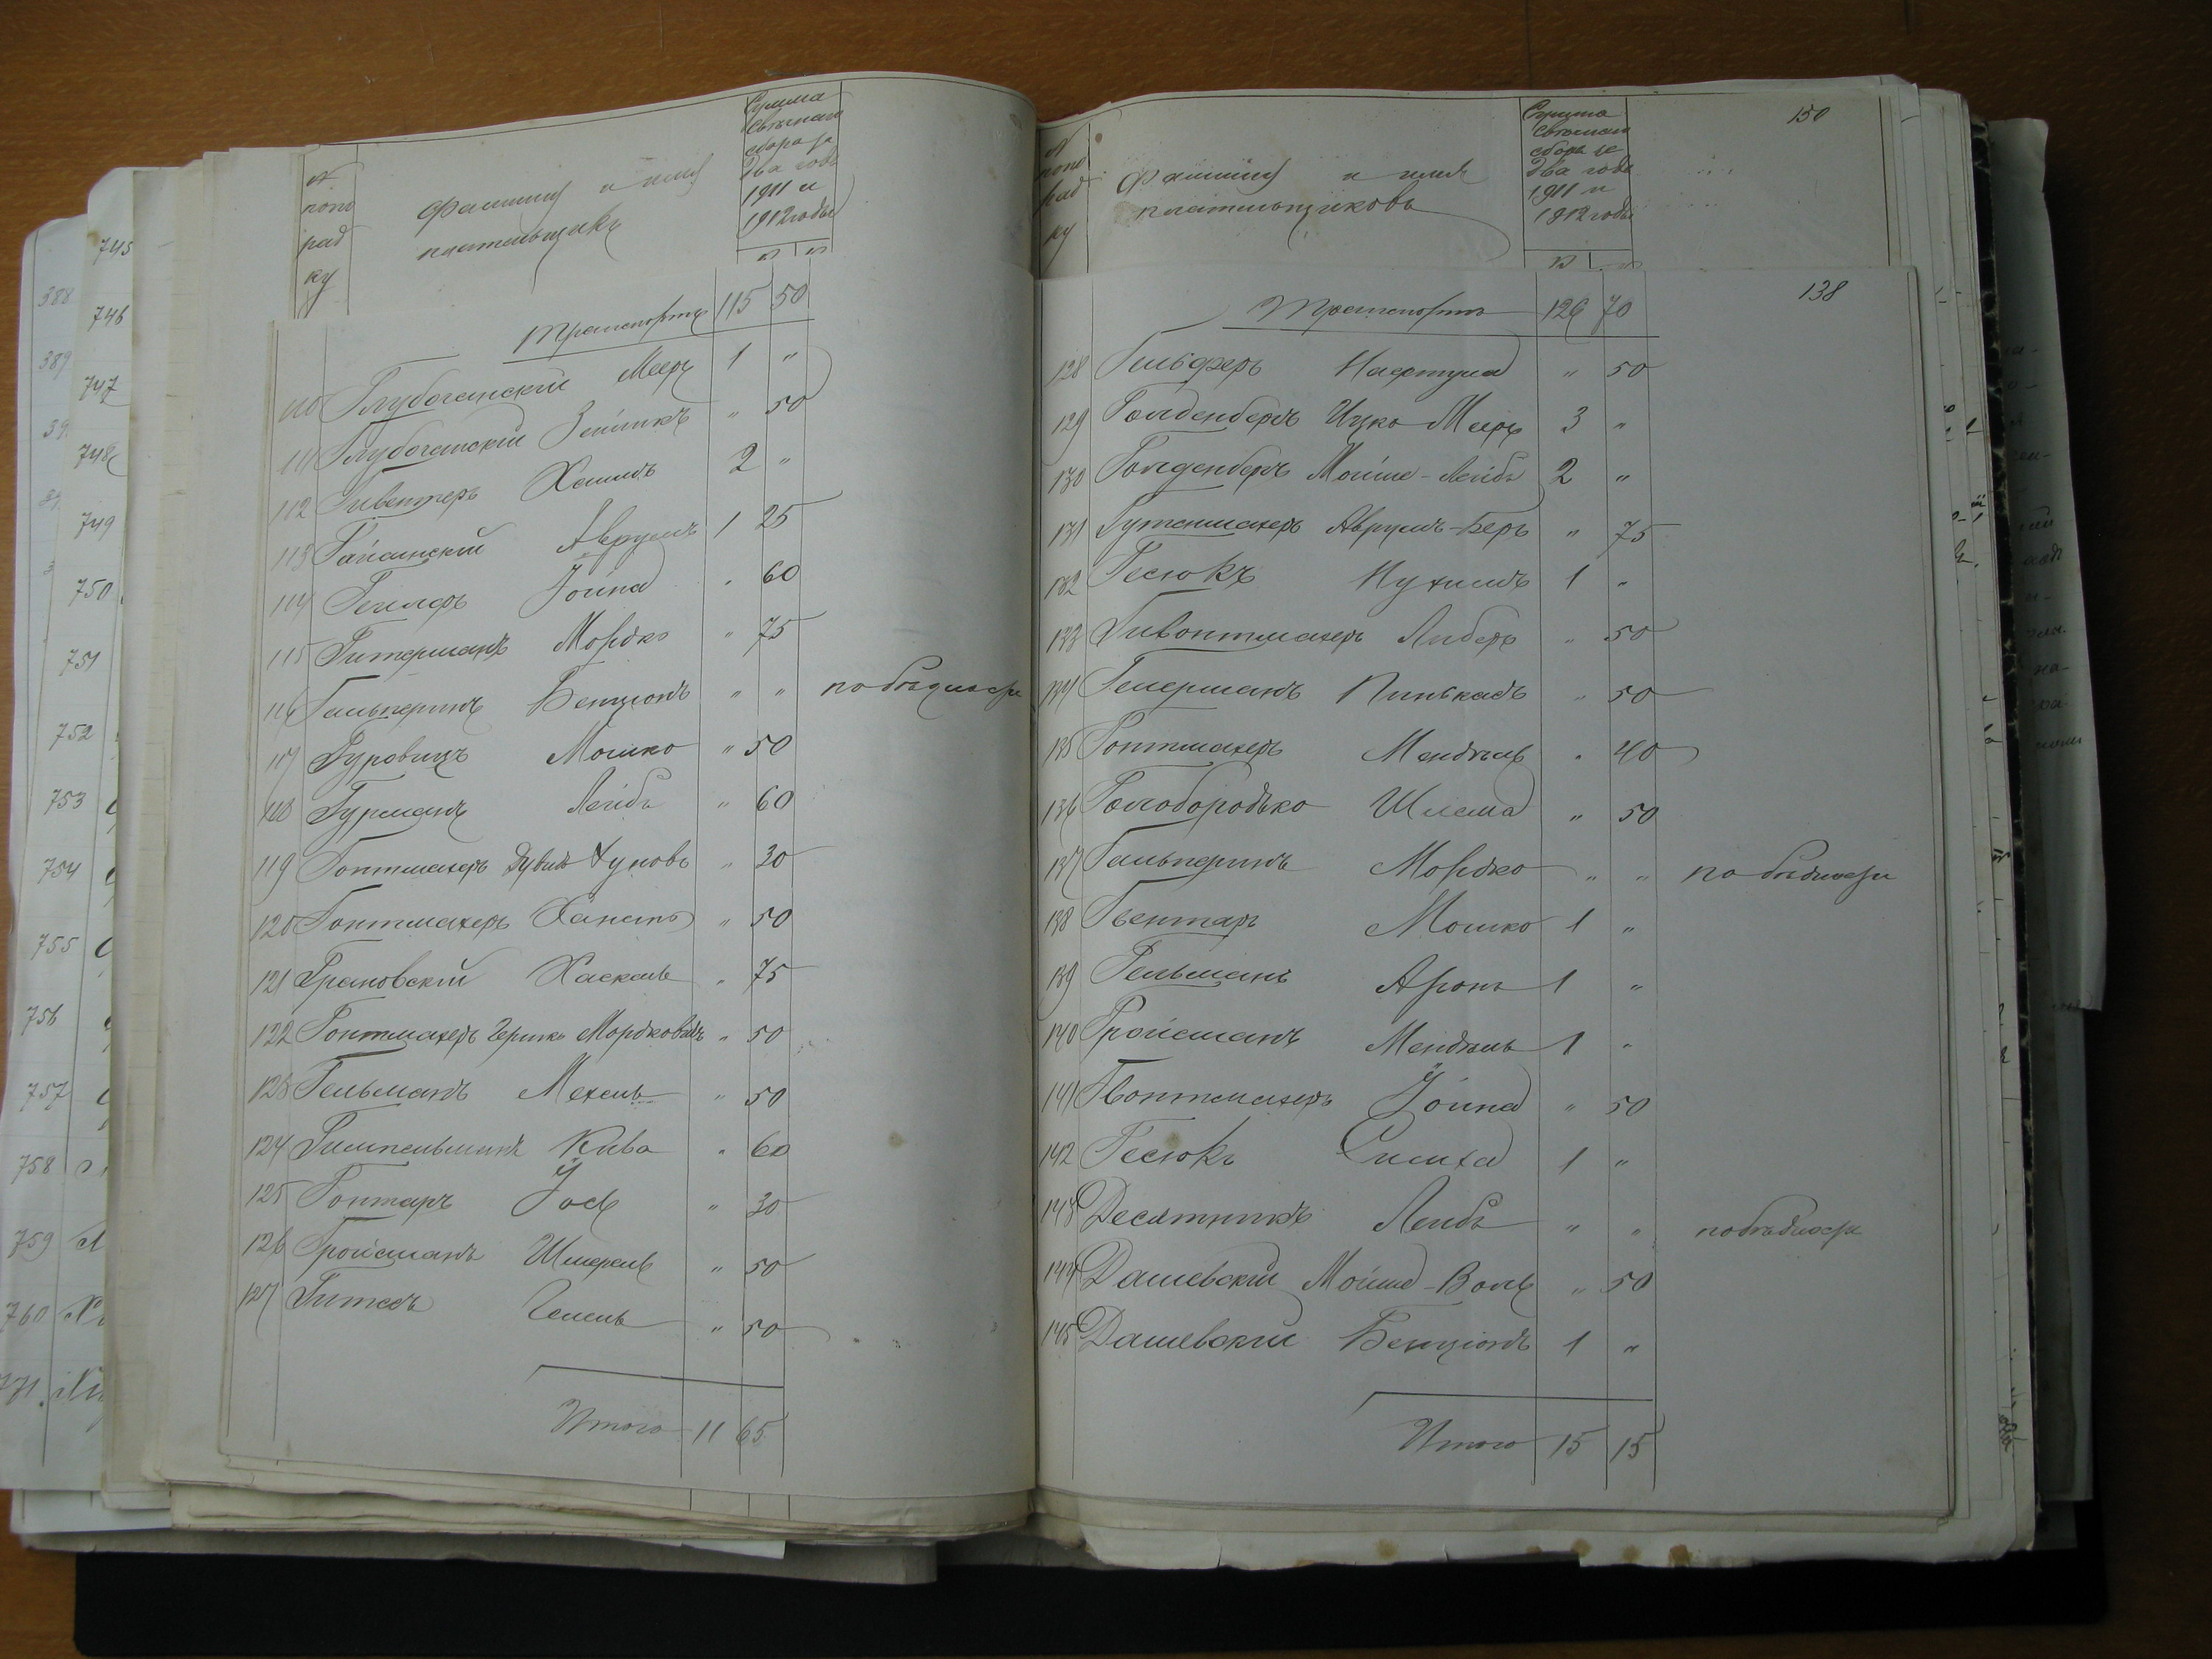 №
поно
ряд
ку
Фамилия и имя
плательщика
Сумма
свечнаго
сбора за
два года
1911 и
1912 годы
Р К
Транспортъ 115 50
110 Глубочанский Мееръ 1 "
111 Глубочанский Зейликъ " 50
112 Хаимъ 2 "
113 Гайсинскій Аврумъ 1 25
114 Іойна " 60
115 Гитерманъ Мордко " 75
116 Гальперинъ Бенціонъ " " по бедности
117 Гуровицъ Мошко " 50
118 Гурманъ Лейба " 60
119 Гонтмахеръ Дувидъ " 30
120 Гонтмахеръ " 50
121 Грановскій Хаскель " 75
122 Гонтмахеръ Мордковичъ " 50
123 Гельманъ Мехель " 50
124 Гимпельманъ Кива " 60
125 Гонтаръ Іосъ " 30
126 Гройсманъ Шмерель " 50
127 " 50
Итого 11 65
150
№
поно
ряд
ку
Фамилия и имя
плательщиковъ
Сумма
свечнаго
сбора за
два года
1911 и
1912 годы
Р К
138
Транспортъ 126 70
128 Гельферъ Нафтула " 50
129 Голденбергъ Ицко Мееръ 3 "
130 Голденбергъ Мойше-Лейба 2 "
131 Гутенмахеръ Аврумъ-Беръ " 75
132 Гесюкъ Нухимъ 1 "
133 Гивонтмахеръ Либеръ " 50
134 Гелерманъ Пинькасъ " 50
135 Гонтмахеръ Мендель " 40
136 Голобородько Шлема " 50
137 Гальперинъ Мордко " " по бедности
138 Гвентаръ Мошко 1 "
139 Гельманъ Аронъ 1 "
140 Гройсманъ Мендель 1 "
141 Гвонтмахеръ Іойна " 50
142 Гесюкъ Симха 1 "
143 Десятникъ Лейба " " по бедности
144 Дашевский Мойше-Волъ " 50
145 Дашевский Бенціонъ 1 "
Итого 15 15
388
389
745
746
747
748
749
750
751
752
753
754
755
756
757
758
759
760